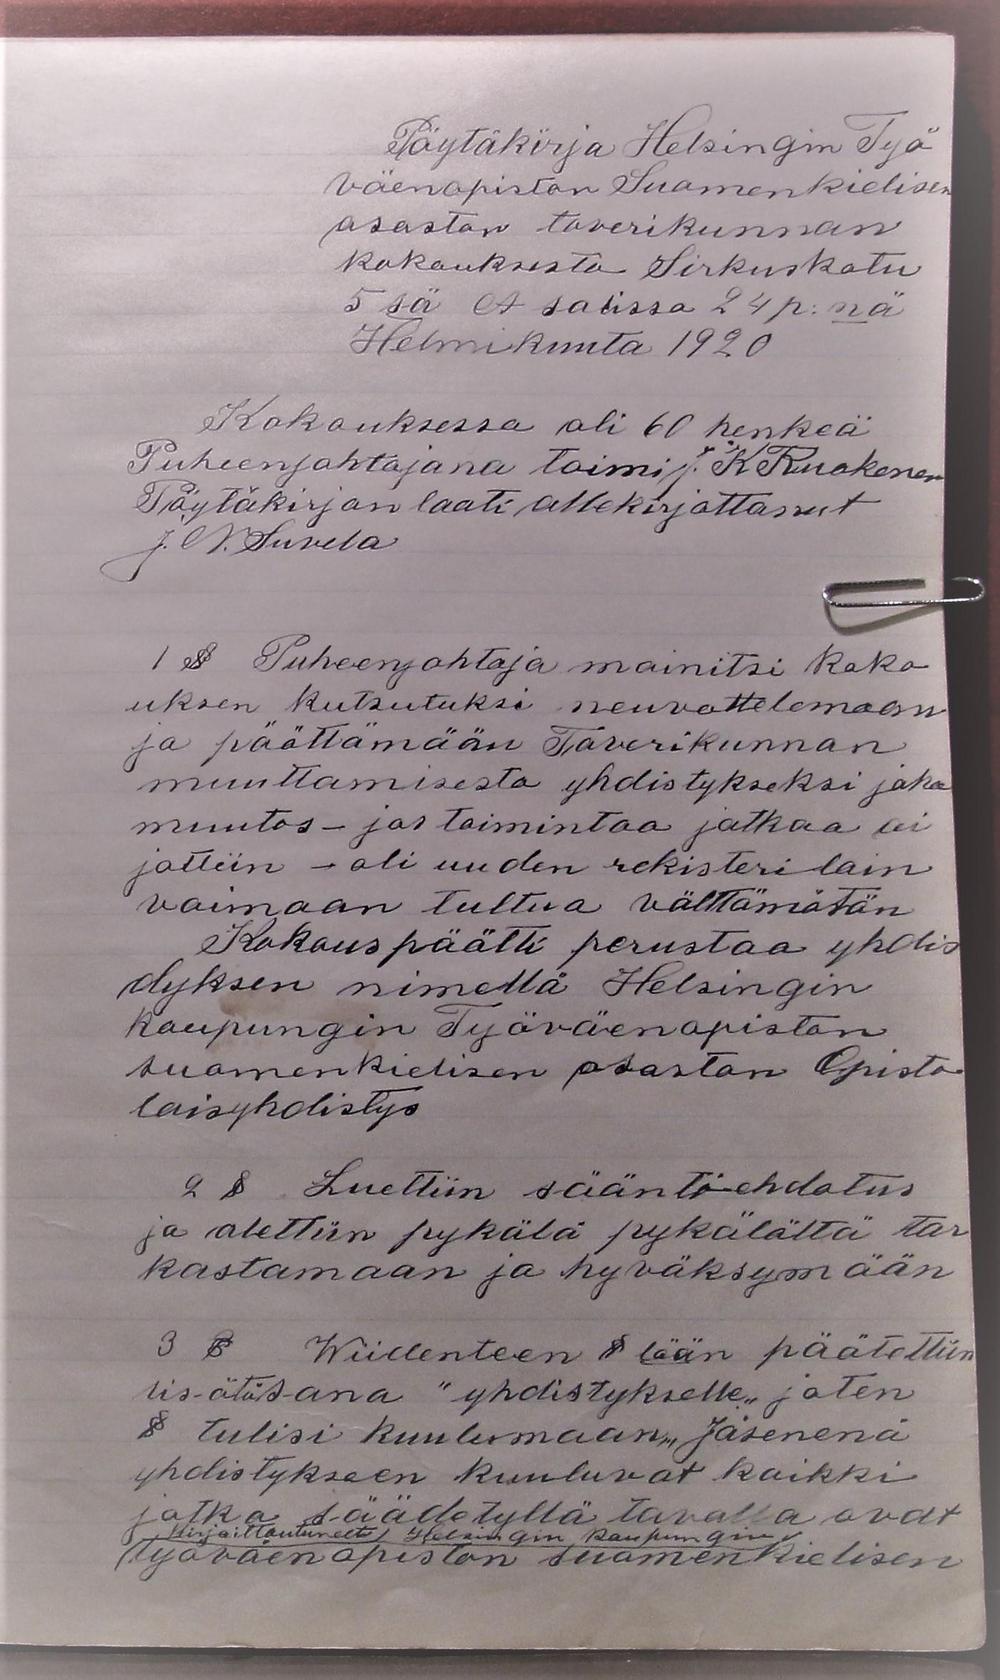 Pöytäkirja Helsingin Työ
väenopiston Suomenkielisen
osaston toverikunnan
kokouksesta Sirkuskatu
5 sä A salissa 24 p: nä
Helmikuuta 1920
Kokouksessa oli 60 henkeä
Puheenjohtajana toimi J. K Ruokonen
Pöytäkirjan laati allekirjottanut
J. N. Suvela
1 § Puheenjohtaja mainitsi koko
uksen kutsutuksi neuvottelemaan
ja päättämään Toverikunnan
muuttamisesta yhdistykseksi joka
muutos – jos toimintaa jatkaa ai
jottiin – oli uuden rekisteri lain
voimaan tultua välttämätön
Kokous päätti perustaa yhdis
dyksen nimellä Helsingin
kaupungin Työväenopiston
suomenkielisen osaston Opisto
laisyhdistys
2 § Luettiin sääntöehdotus
ja alettiin pykälä pykälältä tar
kastamaan ja hyväksymään
3 § Wiidenteen § lään päätettiin
lis-ätä sana "yhdistykselle„ joten
§ tulisi kuulumaan„ Jäsenenä
yhdistykseen kuuluvat kaikki
jotka säädetyllä tavalla ovat
kirjoittautuneet Helsingin kaupungin
työväenopiston suomenkielisen